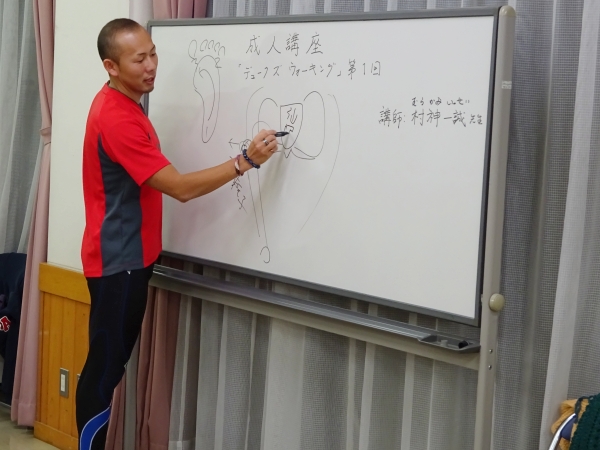 成人講座
「デュークズ ウォーキング」第1回
むらかみ いっせい
講師 村神 一誠 先生